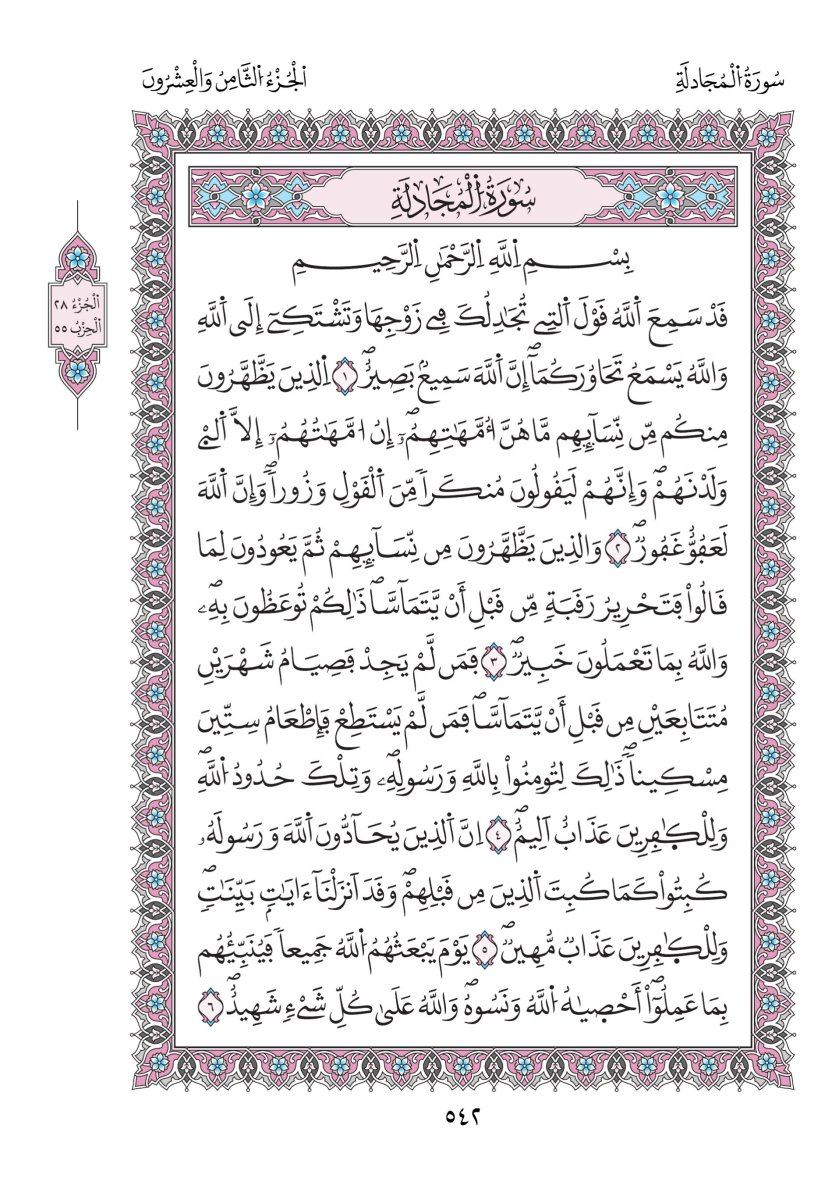 سُورَةُ اُ۬لْمُجَادلَةِ
اَ۬لْجُزْءُ اُ۬لثَّامِنُ وَالْعِشْرُونَ
اَ۬لْجُزْءُ ٢٨
اَ۬لْحِزْبُ ٥٥
سُورَةُ اُ۬لْمُجَادلَةِ
بِسْمِ اِ۬للَّهِ اِ۬لرَّحْمَٰنِ اِ۬لرَّحِيمِ
قَدْ سَمِعَ اَ۬للَّهُ قَوْلَ اَ۬لتِے تُجَٰدِلُكَ فِے زَوْجِهَا وَتَشْتَكِےٓ إِلَى اَ۬للَّهِ
وَاللَّهُ يَسْمَعُ تَحَاوُرَكُمَآۖ إِنَّ اَ۬للَّهَ سَمِيعُۢ بَصِيرٌۖ ١ اِ۬لذِينَ يَظَّهَّرُونَ
مِنكُم مِّن نِّسَآئِهِم مَّا هُنَّ أُمَّهَٰتِهِمُۥٓۖ إِنُ ا۟مَّهَٰتُهُمُۥٓ إِلَّا اَ۬لَّٰٓےْ
وَلَدْنَهُمْۖ وَإِنَّهُمْ لَيَقُولُونَ مُنكَراٗ مِّنَ اَ۬لْقَوْلِ وَزُوراٗۖ وَإِنَّ اَ۬للَّهَ
لَعَفُوٌّ غَفُورٌۖ ٢ وَالذِينَ يَظَّهَّرُونَ مِن نِّسَآئِهِمْ ثُمَّ يَعُودُونَ لِمَا
قَالُواْ فَتَحْرِيرُ رَقَبَةٖ مِّن قَبْلِ أَنْ يَّتَمَآسَّاۖ ذَٰلِكُمْ تُوعَظُونَ بِهِۦۖ
وَاللَّهُ بِمَا تَعْمَلُونَ خَبِيرٌۖ ٣ فَمَن لَّمْ يَجِدْ فَصِيَامُ شَهْرَيْنِ
مُتَتَابِعَيْنِ مِن قَبْلِ أَنْ يَّتَمَآسَّاۖ فَمَن لَّمْ يَسْتَطِعْ فَإِطْعَامُ سِتِّينَ
مِسْكِيناٗۖ ذَٰلِكَ لِتُومِنُواْ بِاللَّهِ وَرَسُولِهِۦۖ وَتِلْكَ حُدُودُ اُ۬للَّهِۖ
وَلِلْكٰ۪فِرِينَ عَذَابٌ اَلِيمٌۖ ٤ اِنَّ اَ۬لذِينَ يُحَآدُّونَ اَ۬للَّهَ وَرَسُولَهُۥ
كُبِتُواْ كَمَا كُبِتَ اَ۬لذِينَ مِن قَبْلِهِمْۖ وَقَدَ اَنزَلْنَآ ءَايَٰتِۢ بَيِّنَٰتٖۖ
وَلِلْكٰ۪فِرِينَ عَذَابٞ مُّهِينٌۖ ٥ يَوْمَ يَبْعَثُهُمُ اُ۬للَّهُ جَمِيعاٗ فَيُنَبِّئُهُم
بِمَا عَمِلُوٓاْۖ أَحْص۪يٰهُ اُ۬للَّهُ وَنَسُوهُۖ وَاللَّهُ عَلَىٰ كُلِّ شَےْءٖ شَهِيدٌۖ ٦
٥٤٢